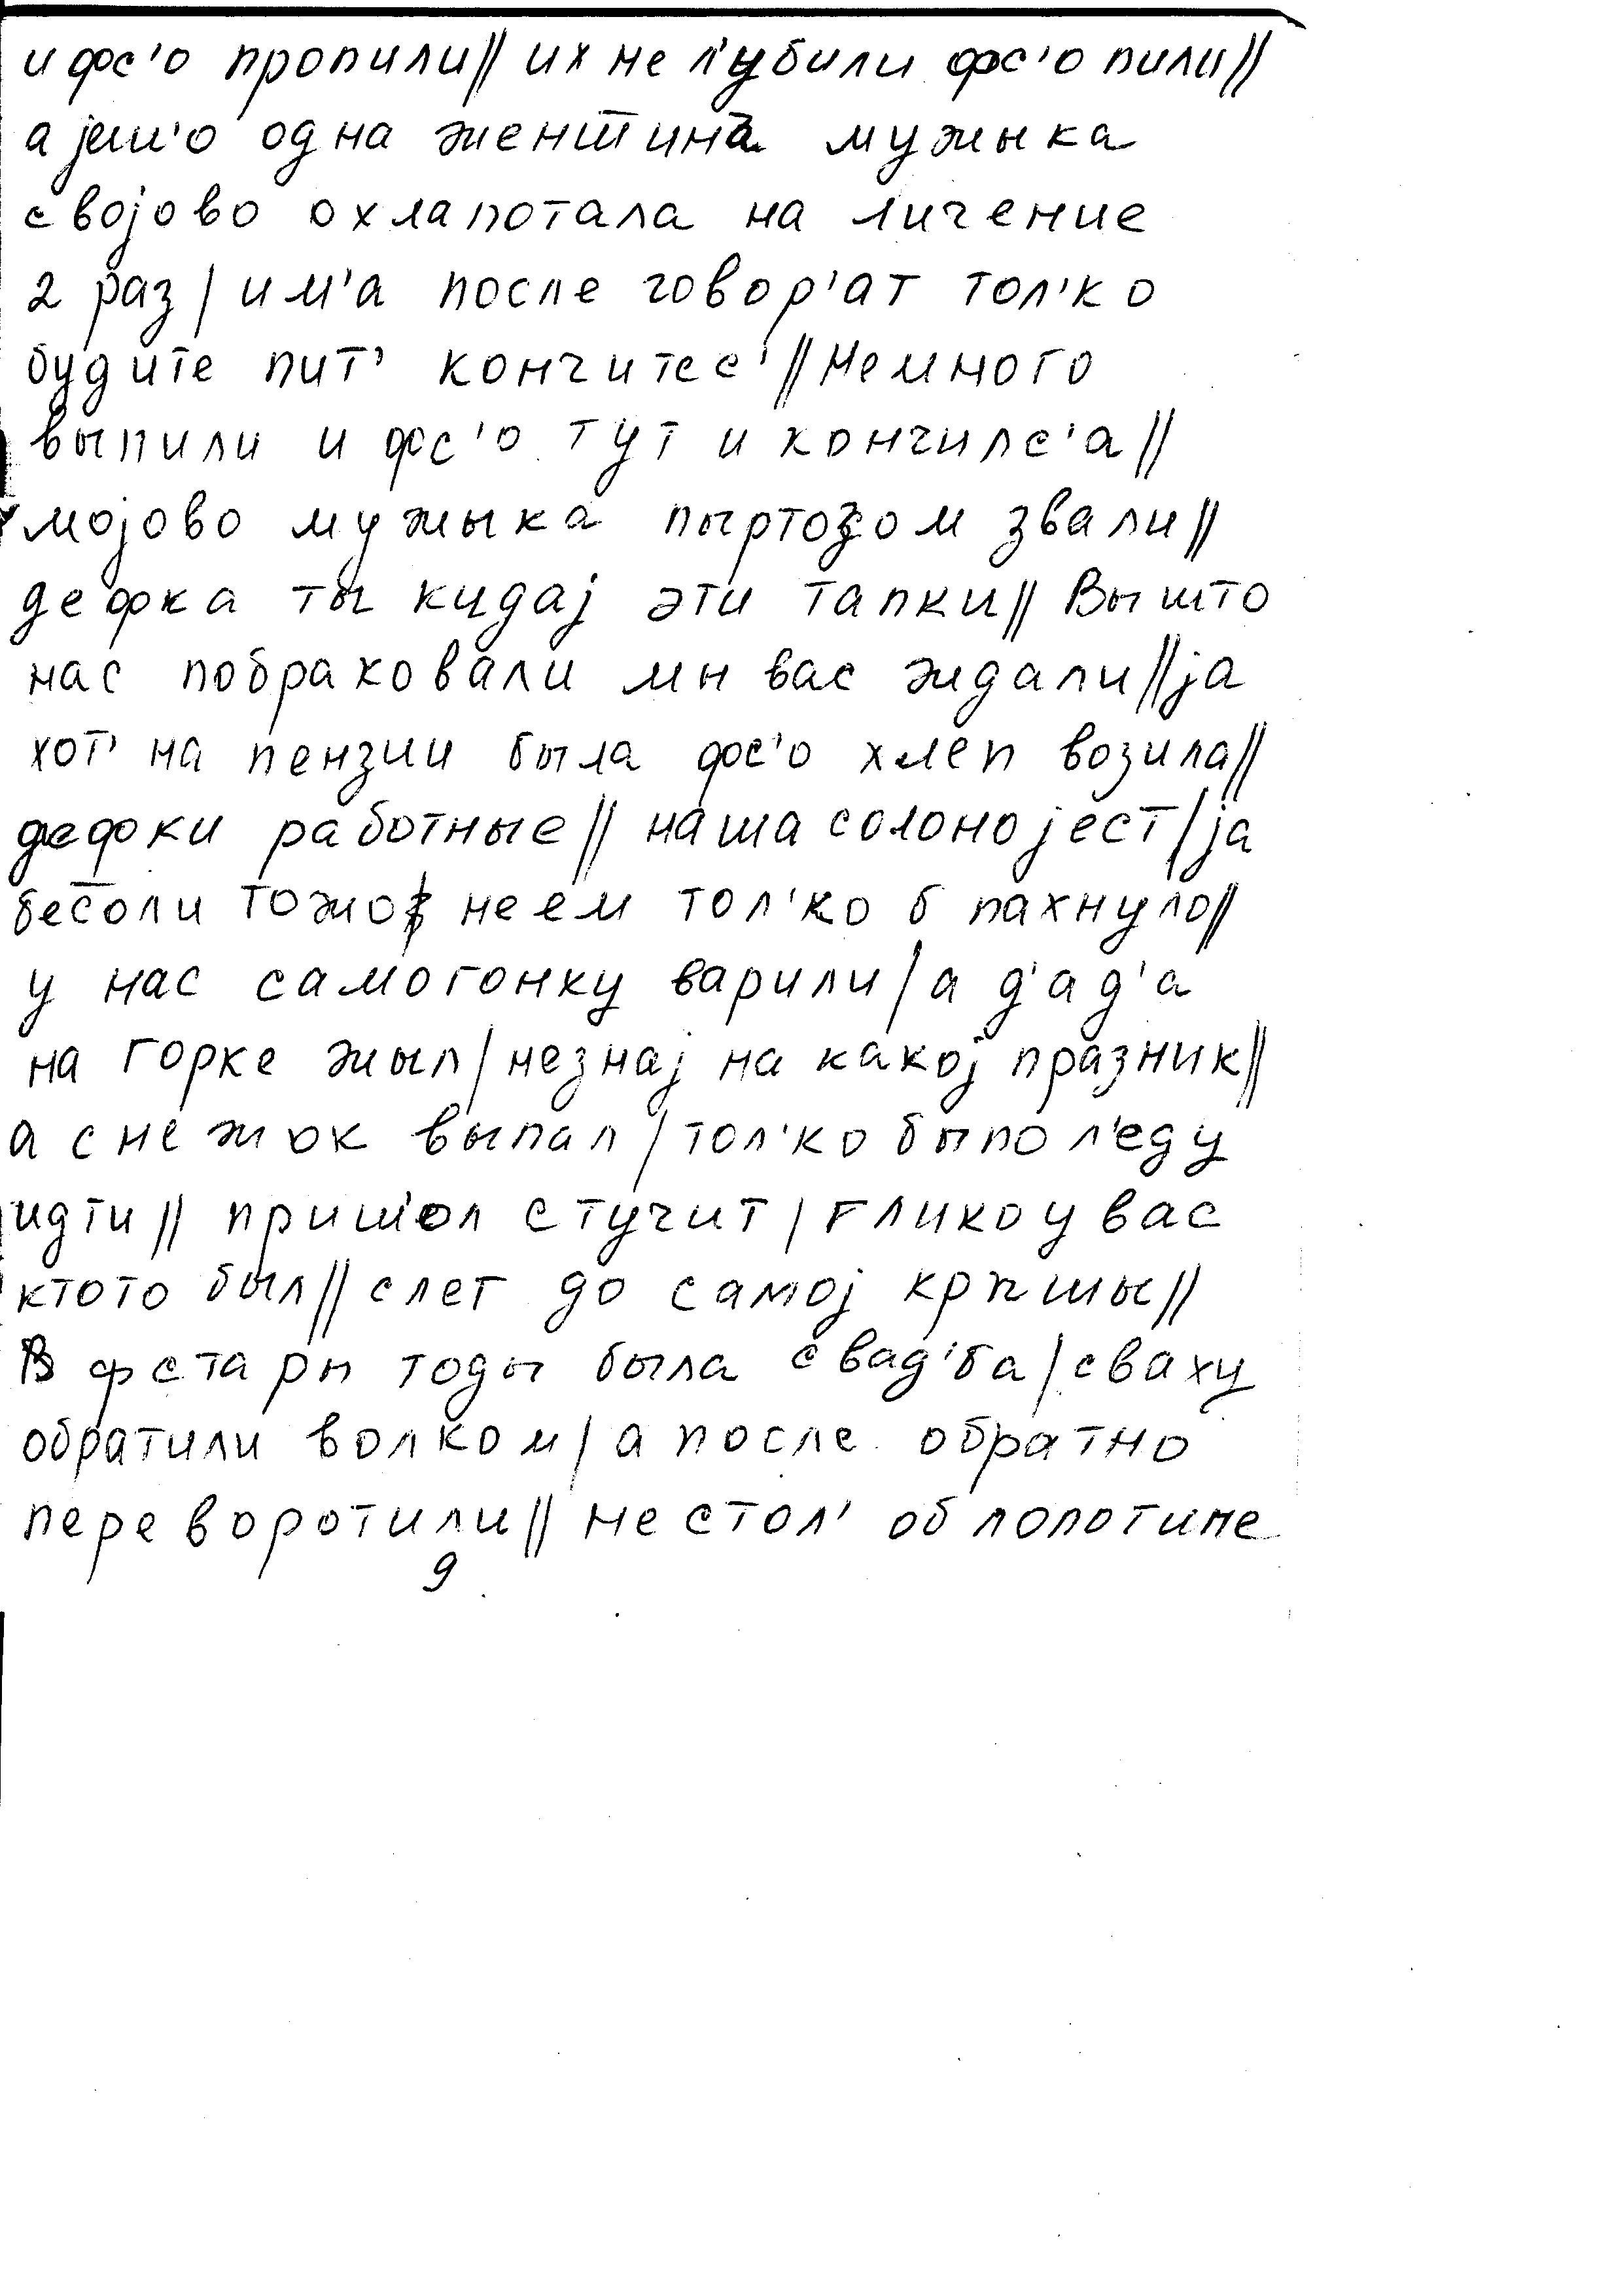 и фс'о пропили|| их не л'убили фс'о пили||
а jeш'о одна женшина мужыка
своjово охлапотала на личение
2 раз| им'а после говор'ат тол'ко
будите пит' кончитес'|| Немного
выпили и фс'о тут и кончилс'а||
моjово мужыка пыртозом звали||
дефка ты кидаj эти тапки|| Вы што
нас побраковали мы вас ждали|| jа
хот' на пензии была фс'о хлеп возила||
дефки работные|| наша солоно jест| jа
бесоли тожо не ем тол'ко б пахнуло||
у нас самогонку варили| а д'ад'а
на горке жыл| незнаj на какоj празник||
а снежок выпал| тол'ко быпо л'еду
идти|| пришол стучит| гликоу вас
ктото был|| слег до самоj крышы||
В фстары годы была свад'ба| сваху
обратили волком| а после обратно
переворотили|| не стол' об лопотине
9